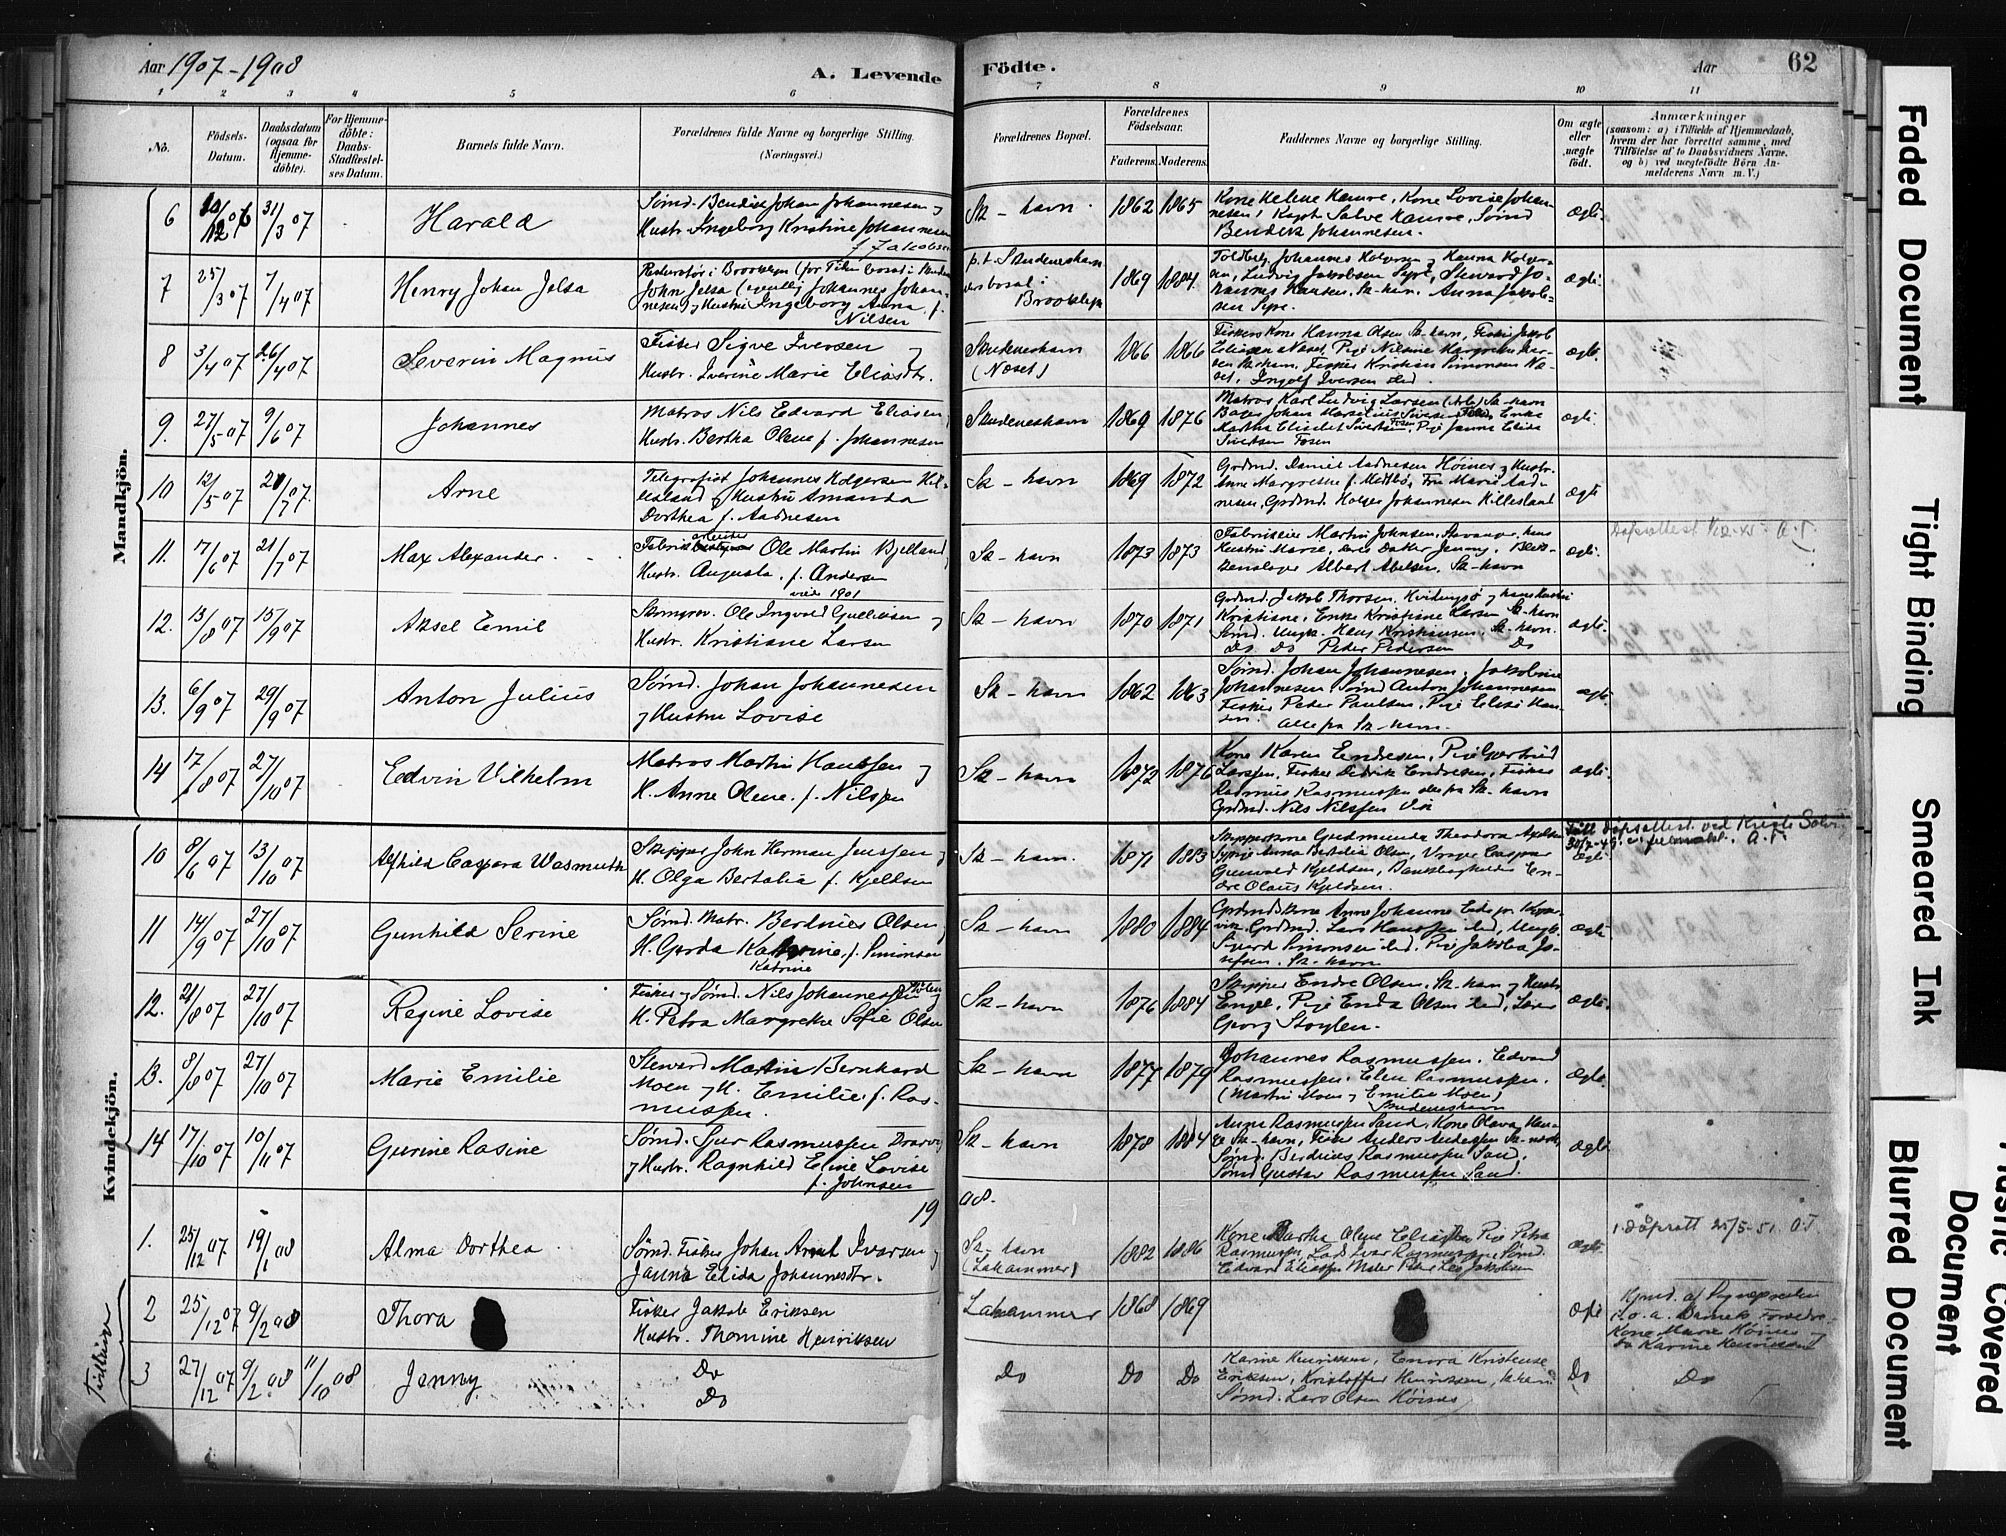 Aar 1907-1908
A. Levende
Födte.
Aar
62
1 2 3 4 5 6 7 8 9 10 11
No.
Födsels-
Datum.
Daabsdatum
(ogsaa for
Hjemme-
döbte).
For Hjemme-
döbte:
Daabs-
Stadfæstel-
ses Datum.
Barnets fulde Navn.
Forældrenes fulde Navne og borgerlige Stilling.
(Næringsvei.)
Forældrenes Bopæl.
Forældrenes
Födselsaar.
Faderens.
Moderens.
Faddernes Navne og borgerlige Stilling.
Om ægte
eller
uægte
födt.
Anmærkninger
(saasom: a) i Tilfælde af Hjemmedaab,
hvem der har forrettet samme, med
Tilföielse af to Daabsvidners Navne,
og b) ved uegtefödte Börn An-
melderens Navn m. V.)
Mandkjön.
6
31/3 07
Harald
Sømd. Bendik Johan Johannesen og
Hustr. Ingeborg Kristine Johannesen
f. Jakobsen
Sk-havn
1862 1865
Kone Helene Hamre, Kone Lovise Johan-
nesen, Kapt. Salve Hamre, Sømd
Bendik Johannesen.
Ægte
7
25/3 07
7/4 07
Henry Johan Jelsa
John Jelsa (egentlig Johannes Johan-
nesen) og Hustru Ingeborg Anna f.
Nilsen
p.t. Skudeneshavn
Brooklyn
1869 1884
Toldbetj. Johannes Holgersen og Hanna Holger-
sen, Ludvig Jakobsen Syre, Steward Jo-
hannes Hansen, Sk-havn, Anna Jakob-
sen Syre.
ægte
8
3/4 07
26/4 07
Severin Magnus
Fisker Sigve Iversen og
Hustr. Iverine Marie Eliasdtr.
Skudeneshavn
(Næset)
1866 1866
Fiskers Kone Hanna Olsen Sk-havn, Fisker Jakob
Eliasen Næset, Pige Nilsine Margrete Iver-
sen Sk-havn, Fisker Kristian Simonsen Næ-
set, Ingolf Iversen sted.
ægte
9.
27/5 07
9/6 07
Johannes
Matros Nils Edvard Eliasen
Hustr. Bertha Olene f. Johannesen
Skudeneshavn
1869 1876
Matros Karl Ludvig Larsen Sk-havn
Martha Elisabet Sivertsen, Pige Janna Elida
Sivertsen Fosen
ægte
10
12/5 07
21/7 07
Arne
Telegrafist Johannes Holgersen Hil-
lesland og Hustru Amanda
Dorthea f. Aadnesen
Sk-havn
1869 1872
Grdmd. Daniel Aadnesen Høines og Hustr.
Anne Margrethe f. Medbø, Frk Marie Aad-
nesen, Grdmd. Holger Johannesen Hillesland
ægte
11.
7/6 07
21/7 07
Max Alexander
Fabrikarbeider Ole Martin Bjelland,
Hustr. Augusta, f. Andersen
viede 1901
Sk-havn
1873 1873
Fabrikeier Martin Johnsen, Stavanger, hans
Hustru Marie, deres Datter Jenny, Blik-
kenslager Albert Abelsen, Sk-havn
ægte
Dåpsattest 1/12-45 A.T.
12.
13/8 07
15/9 07
Aksel Emil
Ole Ingvald Gulliksen og
Hustr. Kristiane Larsen
Sk-havn
1870 1871
Grdmd. Jakob Thorsen, Kvitingsø og hans Hustru
Kristiane, Enke Kristiane Larsen Sk-havn
Sømd. Ungk. Hans Kristiansen, Sk-havn.
Do. Do Peter Pedersen Do
ægte.
13.
6/9 07
29/9 07
Anton Julius
Sømd. Johan Johannesen
og Hustru Lovise
Sk-havn
1862 1863
Sømd. Johan Johannesen, Jakobine
Johannesen, Sømd Anton Johannesen
Fisker Peter Paulsen, Pige Elise Han-
sen. Alle fra Sk-havn.
ægte.
14
17/8 07
27/10 07
Edvin Vilhelm
Matros Martin Hanssen og
H. Anne Olene f. Nilssen
Sk-havn
1872 1876
Kone Karen Endresen, Pige Gjertrud
Larssen, Fisker Didrik Endresen, Fisker
Rasmus Rasmussen alle fra Sk-havn
Grdmd. Nils Nilssen Vik
ægte.
Kvindekjön.
10
8/6 07
13/10 07
Alfhild Caspara Wasmuth
Skipper John Herman Jenssen og
H. Olga Bertalia f. Kjeldsen
Sk-havn.
1871 1883
Skipperkone Gudmunda Theodora Axelsen
Syrepige Anna Bertalia Olsen, Vrager Caspar
Gunvald Kjeldsen, Bankbogholder En-
dre Olaus Kjeldsen.
ægte
11
14/9 07
27/10 07
Gunhild Serine
Sømd. Matr. Berdines Olsen,
H. Gerda Katrine, f. Simonsen
Katrine
Sk-havn
1880 1884
Grdmdskone Anne Johanne
vik, Grdmd. Lars Hanssen sted, Ungk.
Sigurd Simonsen sted, Pige Jakobea Jo-
sefsen, Sk-havn
ægte
12.
21/8 07
27/10 07
Regine Lovise
Fisker og Sømd. Nils Johannessen og
H. Petra Margrethe Sofie Olsen
Sk-havn
1876 1884
Skipper Endre Olsen, Sk-havn og Hustr
Engel, Pige Enda Olsen sted, Lærer
Georg Stoylen.
ægte
13.
8/8 07
27/10 07
Marie Emilie
Steward Martin Bernhard
Moen og H. Emilie f. Ras-
mussen.
Sk-havn
1877 1879
Johannes Rasmussen, Edvard
Rasmussen, Elen Rasmussen,
(Martin Moen og Emilie Moen)
Skudeneshavn
ægte.
14
17/10 07
10/11 07
Gurine Rasine
Sømd. Gur Rasmussen
og Hustr. Ragnhild Eline Lovise
f. Johnsen
Sk-havn
1878 1884
Anne Rasmussen Sand, Kone Olava
Sk-havn, Fisker Anders Andersen Sk-næs,
Sømd. Berdines Rasmussen Sand,
Sømd Gustav Rasmussen Sand.
ægte
19
08.
1.
25/12 07
19/1 08
Alma Dorthea
Sømd. Fisker Johan Arnt Ivarsen og
Janna Elida Johannesdtr.
Sk-havn
(Lahammer)
1882 1886
Kone Bertha Olene Eliassen Pige Petra
Rasmussen, Lods Ivar Rasmussen, Sømd.
Edvard Eliassen
ægte.
1. dåpsatt 25/5-51. O.T
Tvillinger
2
25/12 07
9/2 08
Thora
Fisker Jakob Eriksen
Hustr. Thomine Henriksen
Lahammer
1868 1869
ægte
Kone Marie Høines og
do Karine Henriksen
3
27/12 07
9/2 08
11/10 08
Jenny
Do
Do
Do
Do
Do
Karine Henriksen, Enora Kristense
Eriksen, Kristoffer Henriksen,
Sømd. Lars Olsen Høines
Do
Do
Faded Document
Tight Binding
Smeared Ink
Blurred Document
Plastic Covered
Document